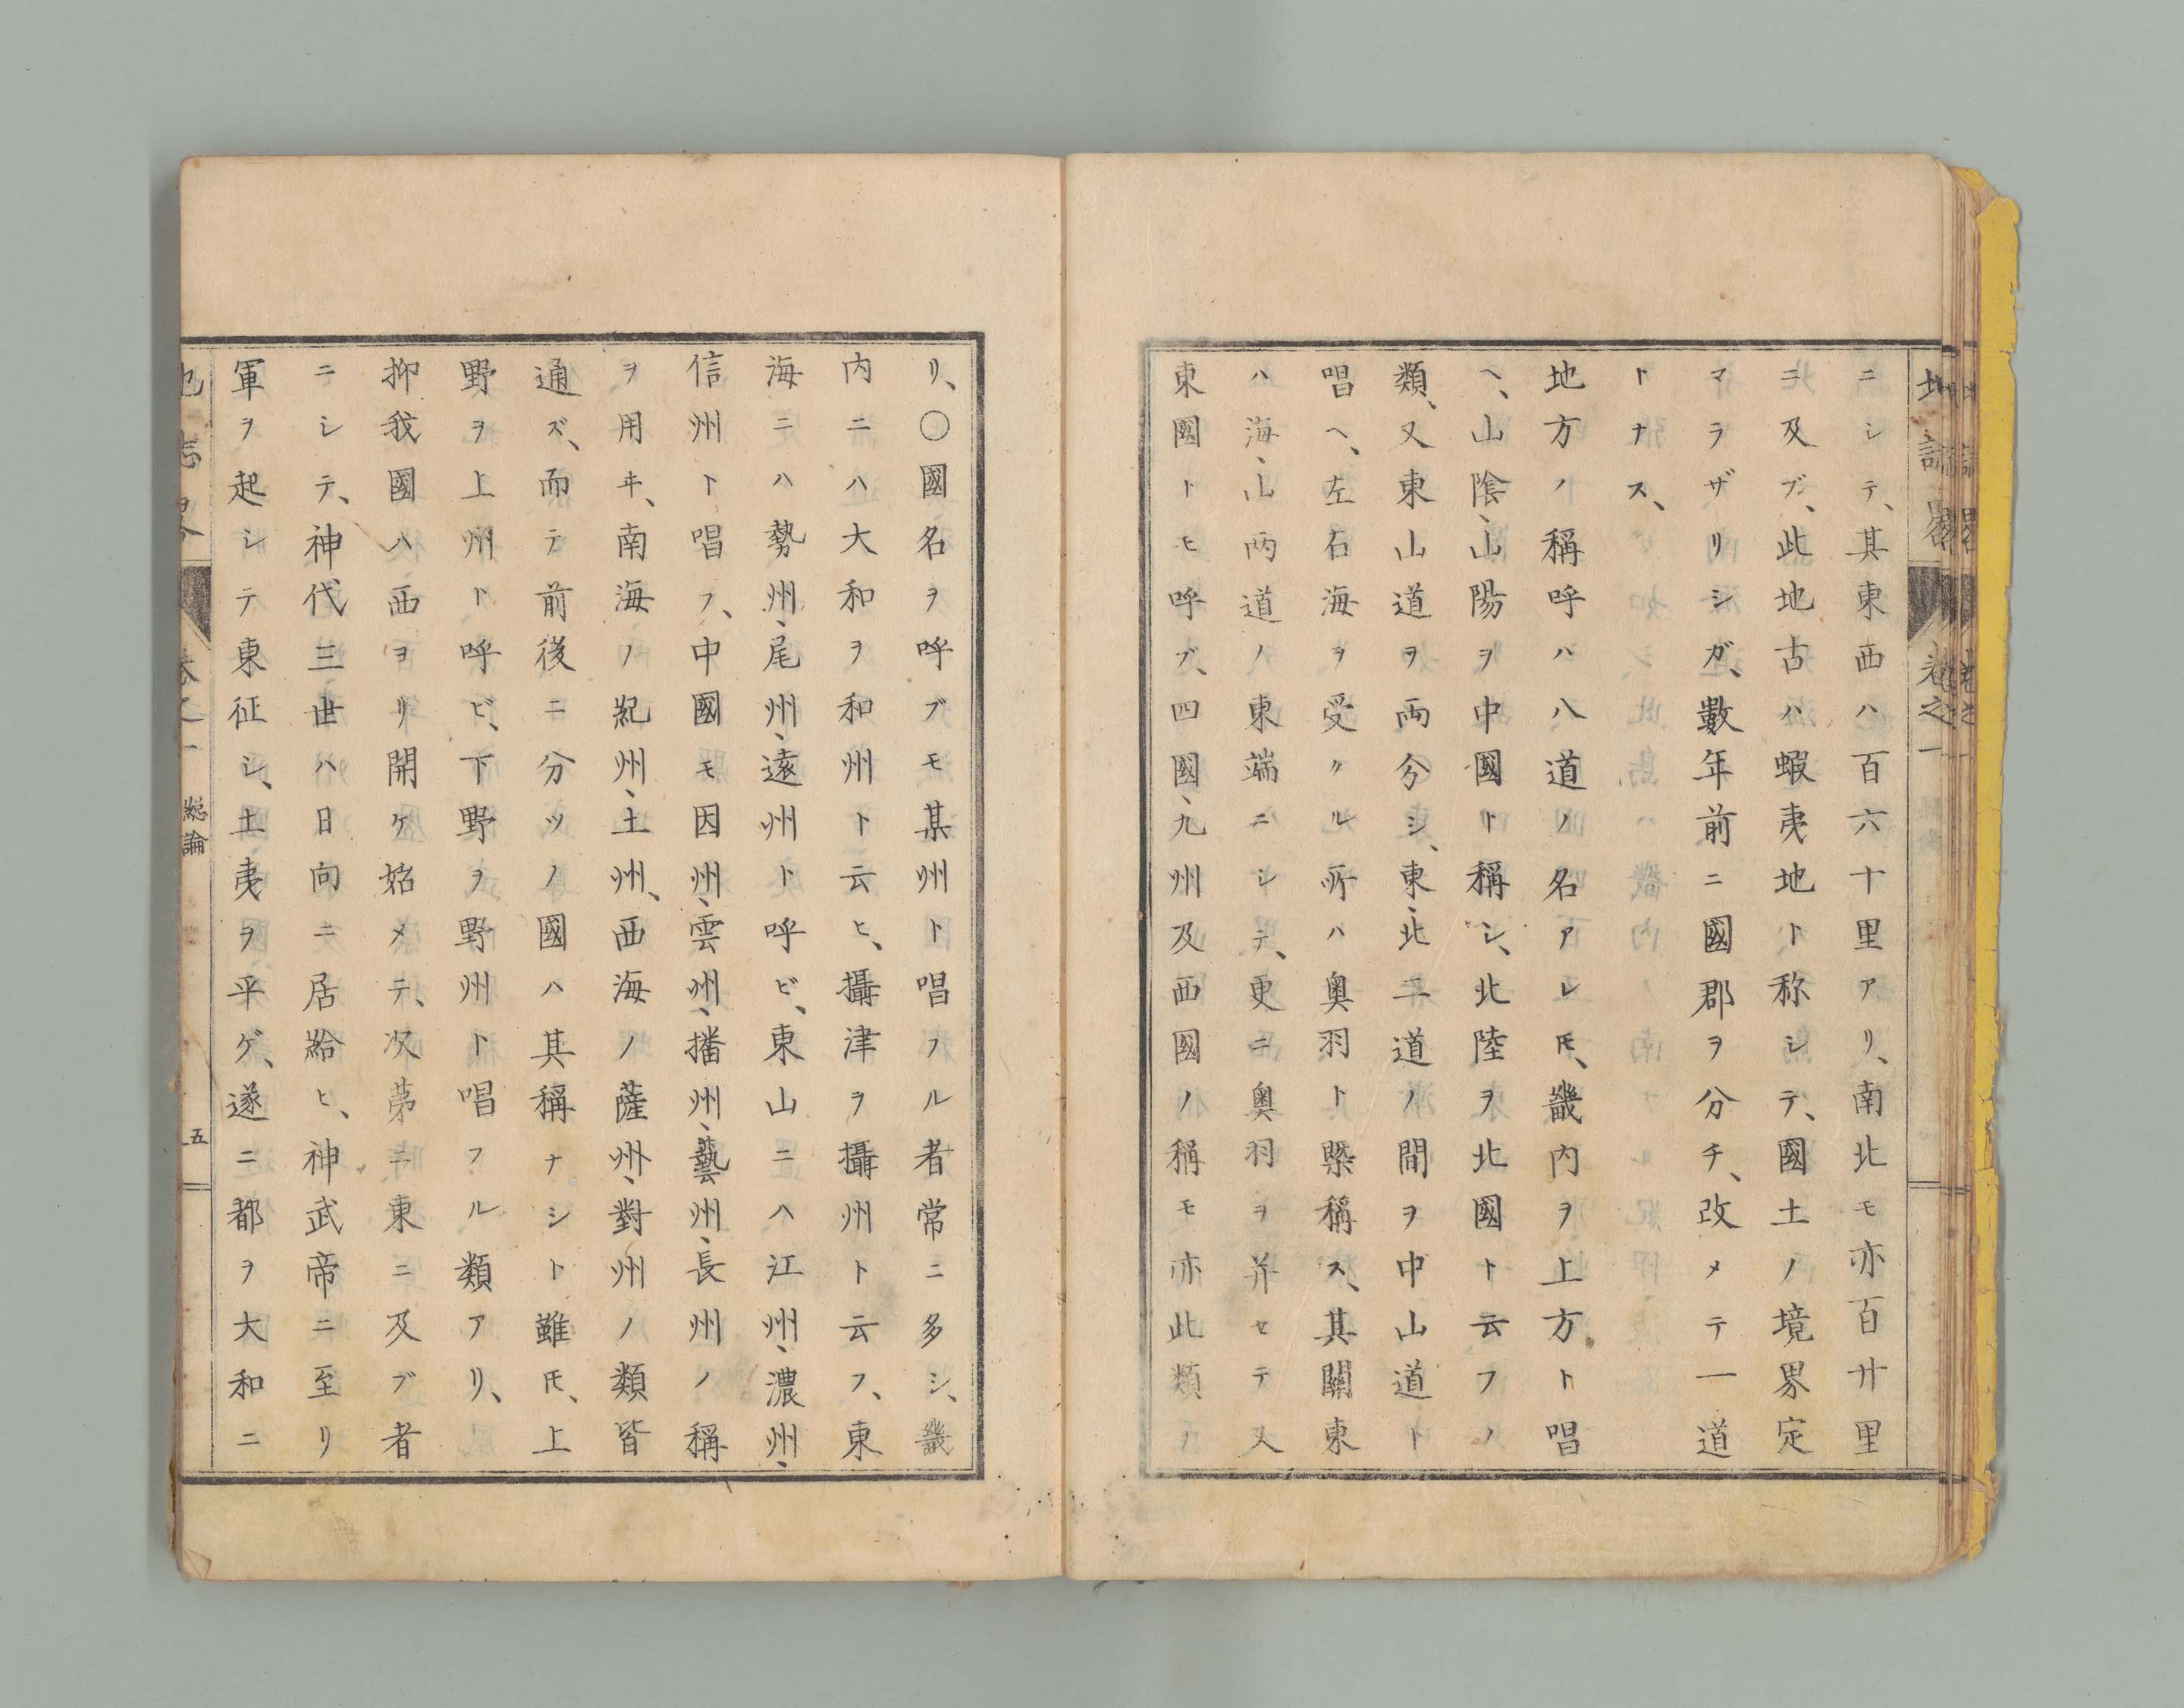 地誌畧
卷之一
ニシテ、其東西ハ百六十里アリ、南北モ亦百廿里
ニ及ブ、此地古ハ蝦夷地ト称シテ、國土ノ境界定
マラザリシガ、數年前ニ國郡ヲ分チ、改メテ一道
トナス、
地方ノ稱呼ハ八道ノ名アレ𪜈、畿内ヲ上方ト唱
ヘ、山陰、山陽ヲ中國ト稱シ、北陸ヲ北國ト云フノ
類、又東山道ヲ兩分シ、東、北二道ノ間ヲ中山道ト
唱ヘ、左右海ヲ受クル所ハ奥羽ト槩稱ス、其關東
ハ海、山兩道ノ東端ニシテ、更ニ奥羽ヲ并セテ又
東國トモ呼ブ、四國、九州及西國ノ稱モ亦此類ナ
リ、〇國名ヲ呼ブモ某州ト唱フル者常ニ多シ、畿
内ニハ大和ヲ和州ト云ヒ、攝津ヲ攝州ト云フ、東
海ニハ勢州、尾州、遠州ト呼ビ、東山ニハ江州、濃州、
信州ト唱フ、中國モ因州、雲州、播州、藝州、長州ノ稱
ヲ用ヰ、南海ノ紀州、土州、西海ノ薩州、對州ノ類皆
通ズ、而テ前後ニ分ツノ國ハ其稱ナシト雖𪜈、上
野ヲ上州ト呼ビ、下野ヲ野州ト唱フル類アリ、
抑我國ハ西ヨリ開ケ始メテ、次第ニ東ニ及ブ者
ニシテ、神代三世ハ日向ニ居給ヒ、神武帝ニ至リ
軍ヲ起シテ東征シ、土夷ヲ平ゲ、遂ニ都ヲ大和ニ
地志畧
卷之一
總論
五